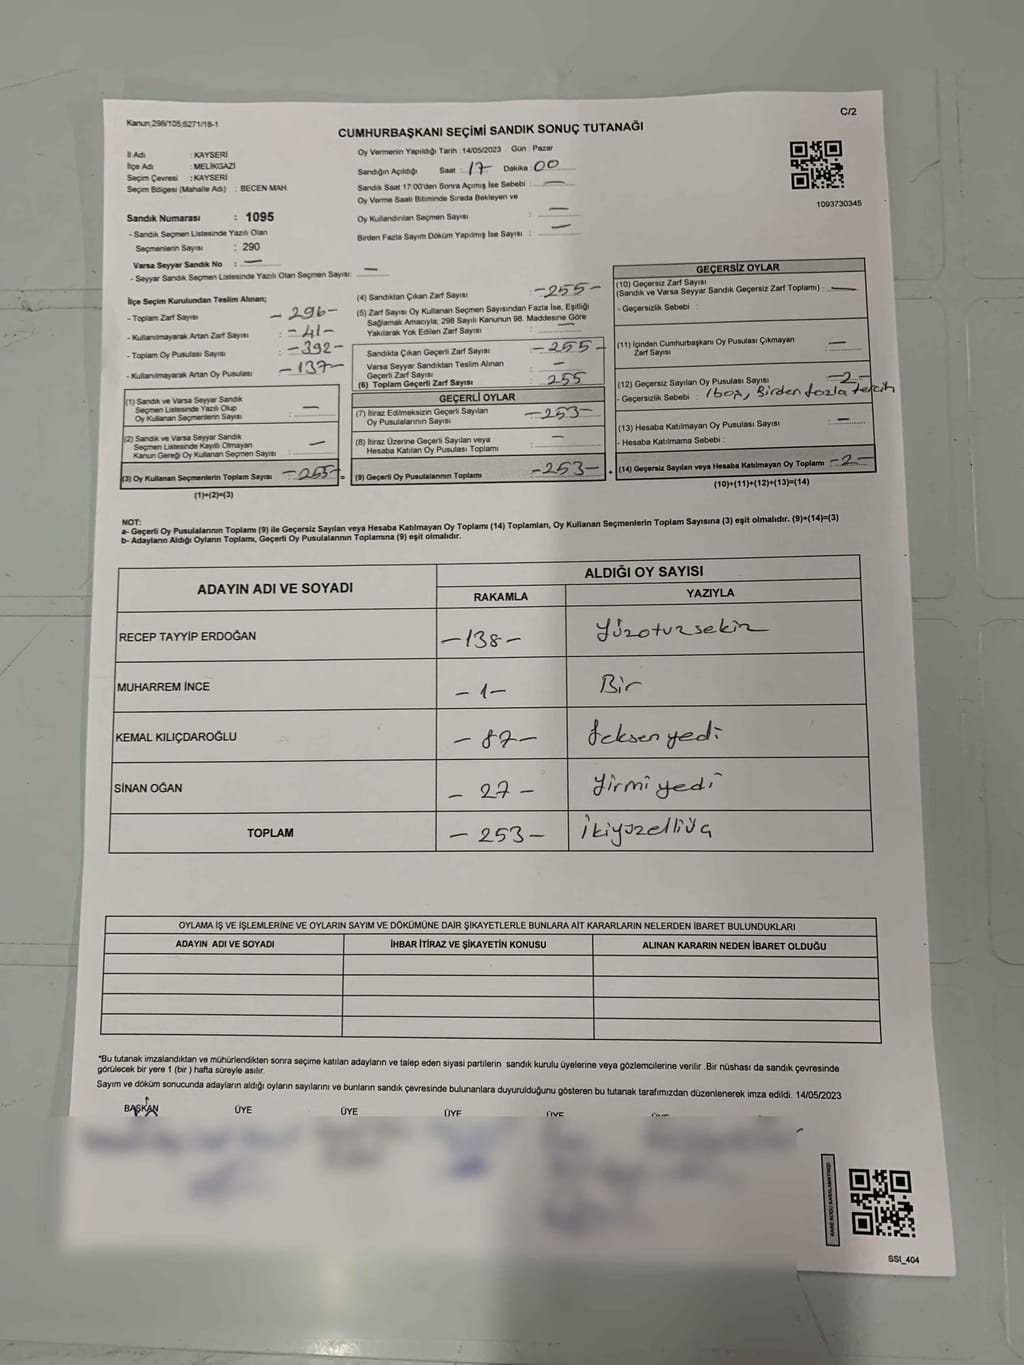 Kanun;298/105;6271/18-1
C/2
CUMHURBAŞKANI SEÇİMİ SANDIK SONUÇ TUTANAĞI
İl Adı : KAYSERİ
İlçe Adı : MELİKGAZİ
Seçim Çevresi : KAYSERİ
Seçim Bölgesi (Mahalle Adı) : BECEN MAH.
Sandık Numarası : 1095
- Sandık Seçmen Listesinde Yazılı Olan
Seçmenlerin Sayısı : 290
Varsa Seyyar Sandık No : —
- Seyyar Sandık Seçmen Listesinde Yazılı Olan Seçmen Sayısı: —
Oy Vermenin Yapıldığı Tarih : 14/05/2023 Gün : Pazar
Sandığın Açıldığı Saat : 17 Dakika : 00
Sandık Saat 17:00'den Sonra Açımış İse Sebebi : —
Oy Verme Saati Bitiminde Sırada Bekleyen ve
Oy Kullandırılan Seçmen Sayısı : —
Birden Fazla Sayım Döküm Yapılmış İse Sayısı : —
1093730345
İlçe Seçim Kurulundan Teslim Alınan;
- Toplam Zarf Sayısı : -296-
- Kullanılmayarak Artan Zarf Sayısı : -41-
- Toplam Oy Pusulası Sayısı : -392-
- Kullanılmayarak Artan Oy Pusulası : -137-
(1) Sandık ve Varsa Seyyar Sandık
Seçmen Listesinde Yazılı Olup
Oy Kullanan Seçmenlerin Sayısı : —
(2) Sandık ve Varsa Seyyar Sandık
Seçmen Listesinde Kayıtlı Olmayan
Kanun Gereği Oy Kullanan Seçmen Sayısı : —
(3) Oy Kullanan Seçmenlerin Toplam Sayısı : -255- =
(1)+(2)=(3)
(4) Sandıktan Çıkan Zarf Sayısı : -255-
(5) Zarf Sayısı Oy Kullanan Seçmen Sayısından Fazla İse, Eşitliği
Sağlamak Amacıyla; 298 Sayılı Kanunun 98. Maddesine Göre
Yakılarak Yok Edilen Zarf Sayısı : —
Sandıkta Çıkan Geçerli Zarf Sayısı : -255-
Varsa Seyyar Sandıktan Teslim Alınan
Geçerli Zarf Sayısı : —
(6) Toplam Geçerli Zarf Sayısı : 255
GEÇERLİ OYLAR
(7) İtiraz Edilmeksizin Geçerli Sayılan
Oy Pusulalarının Sayısı : -253-
(8) İtiraz Üzerine Geçerli Sayılan veya
Hesaba Katılan Oy Pusulası Toplamı : —
(9) Geçerli Oy Pusulalarının Toplamı : -253- +
GEÇERSİZ OYLAR
(10) Geçersiz Zarf Sayısı
(Sandık ve Varsa Seyyar Sandık Geçersiz Zarf Toplamı) : —
- Geçersizlik Sebebi :
(11) İçinden Cumhurbaşkanı Oy Pusulası Çıkmayan
Zarf Sayısı : —
(12) Geçersiz Sayılan Oy Pusulası Sayısı : -2-
- Geçersizlik Sebebi : 1 boş, Birden fazla tercih
(13) Hesaba Katılmayan Oy Pusulası Sayısı : —
- Hesaba Katılmama Sebebi :
(14) Geçersiz Sayılan veya Hesaba Katılmayan Oy Toplamı : -2-
(10)+(11)+(12)+(13)=(14)
NOT:
a- Geçerli Oy Pusulalarının Toplamı (9) ile Geçersiz Sayılan veya Hesaba Katılmayan Oy Toplamı (14) Toplamları, Oy Kullanan Seçmenlerin Toplam Sayısına (3) eşit olmalıdır. (9)+(14)=(3)
b- Adayların Aldığı Oyların Toplamı, Geçerli Oy Pusulalarının Toplamına (9) eşit olmalıdır.
ADAYIN ADI VE SOYADI
ALDIĞI OY SAYISI
RAKAMLA YAZIYLA
RECEP TAYYİP ERDOĞAN -138- Yüzotuzsekiz
MUHARREM İNCE -1- Bir
KEMAL KILIÇDAROĞLU -87- Seksenyedi
SİNAN OĞAN -27- Yirmiyedi
TOPLAM -253- İkiyüzelliüç
OYLAMA İŞ VE İŞLEMLERİNE VE OYLARIN SAYIM VE DÖKÜMÜNE DAİR ŞİKAYETLERLE BUNLARA AİT KARARLARIN NELERDEN İBARET BULUNDUKLARI
ADAYIN ADI VE SOYADI İHBAR İTİRAZ VE ŞİKAYETİN KONUSU ALINAN KARARIN NEDEN İBARET OLDUĞU
*Bu tutanak imzalandıktan ve mühürlendikten sonra seçime katılan adayların ve talep eden siyasi partilerin sandık kurulu üyelerine veya gözlemcilerine verilir .Bir nüshası da sandık çevresinde
görülecek bir yere 1 (bir ) hafta süreyle asılır.
Sayım ve döküm sonucunda adayların aldığı oyların sayılarını ve bunların sandık çevresinde bulunanlara duyurulduğunu gösteren bu tutanak tarafımızdan düzenlenerek imza edildi. 14/05/2023
BAŞKAN ÜYE ÜYE ÜYE ÜYE
SSI_404